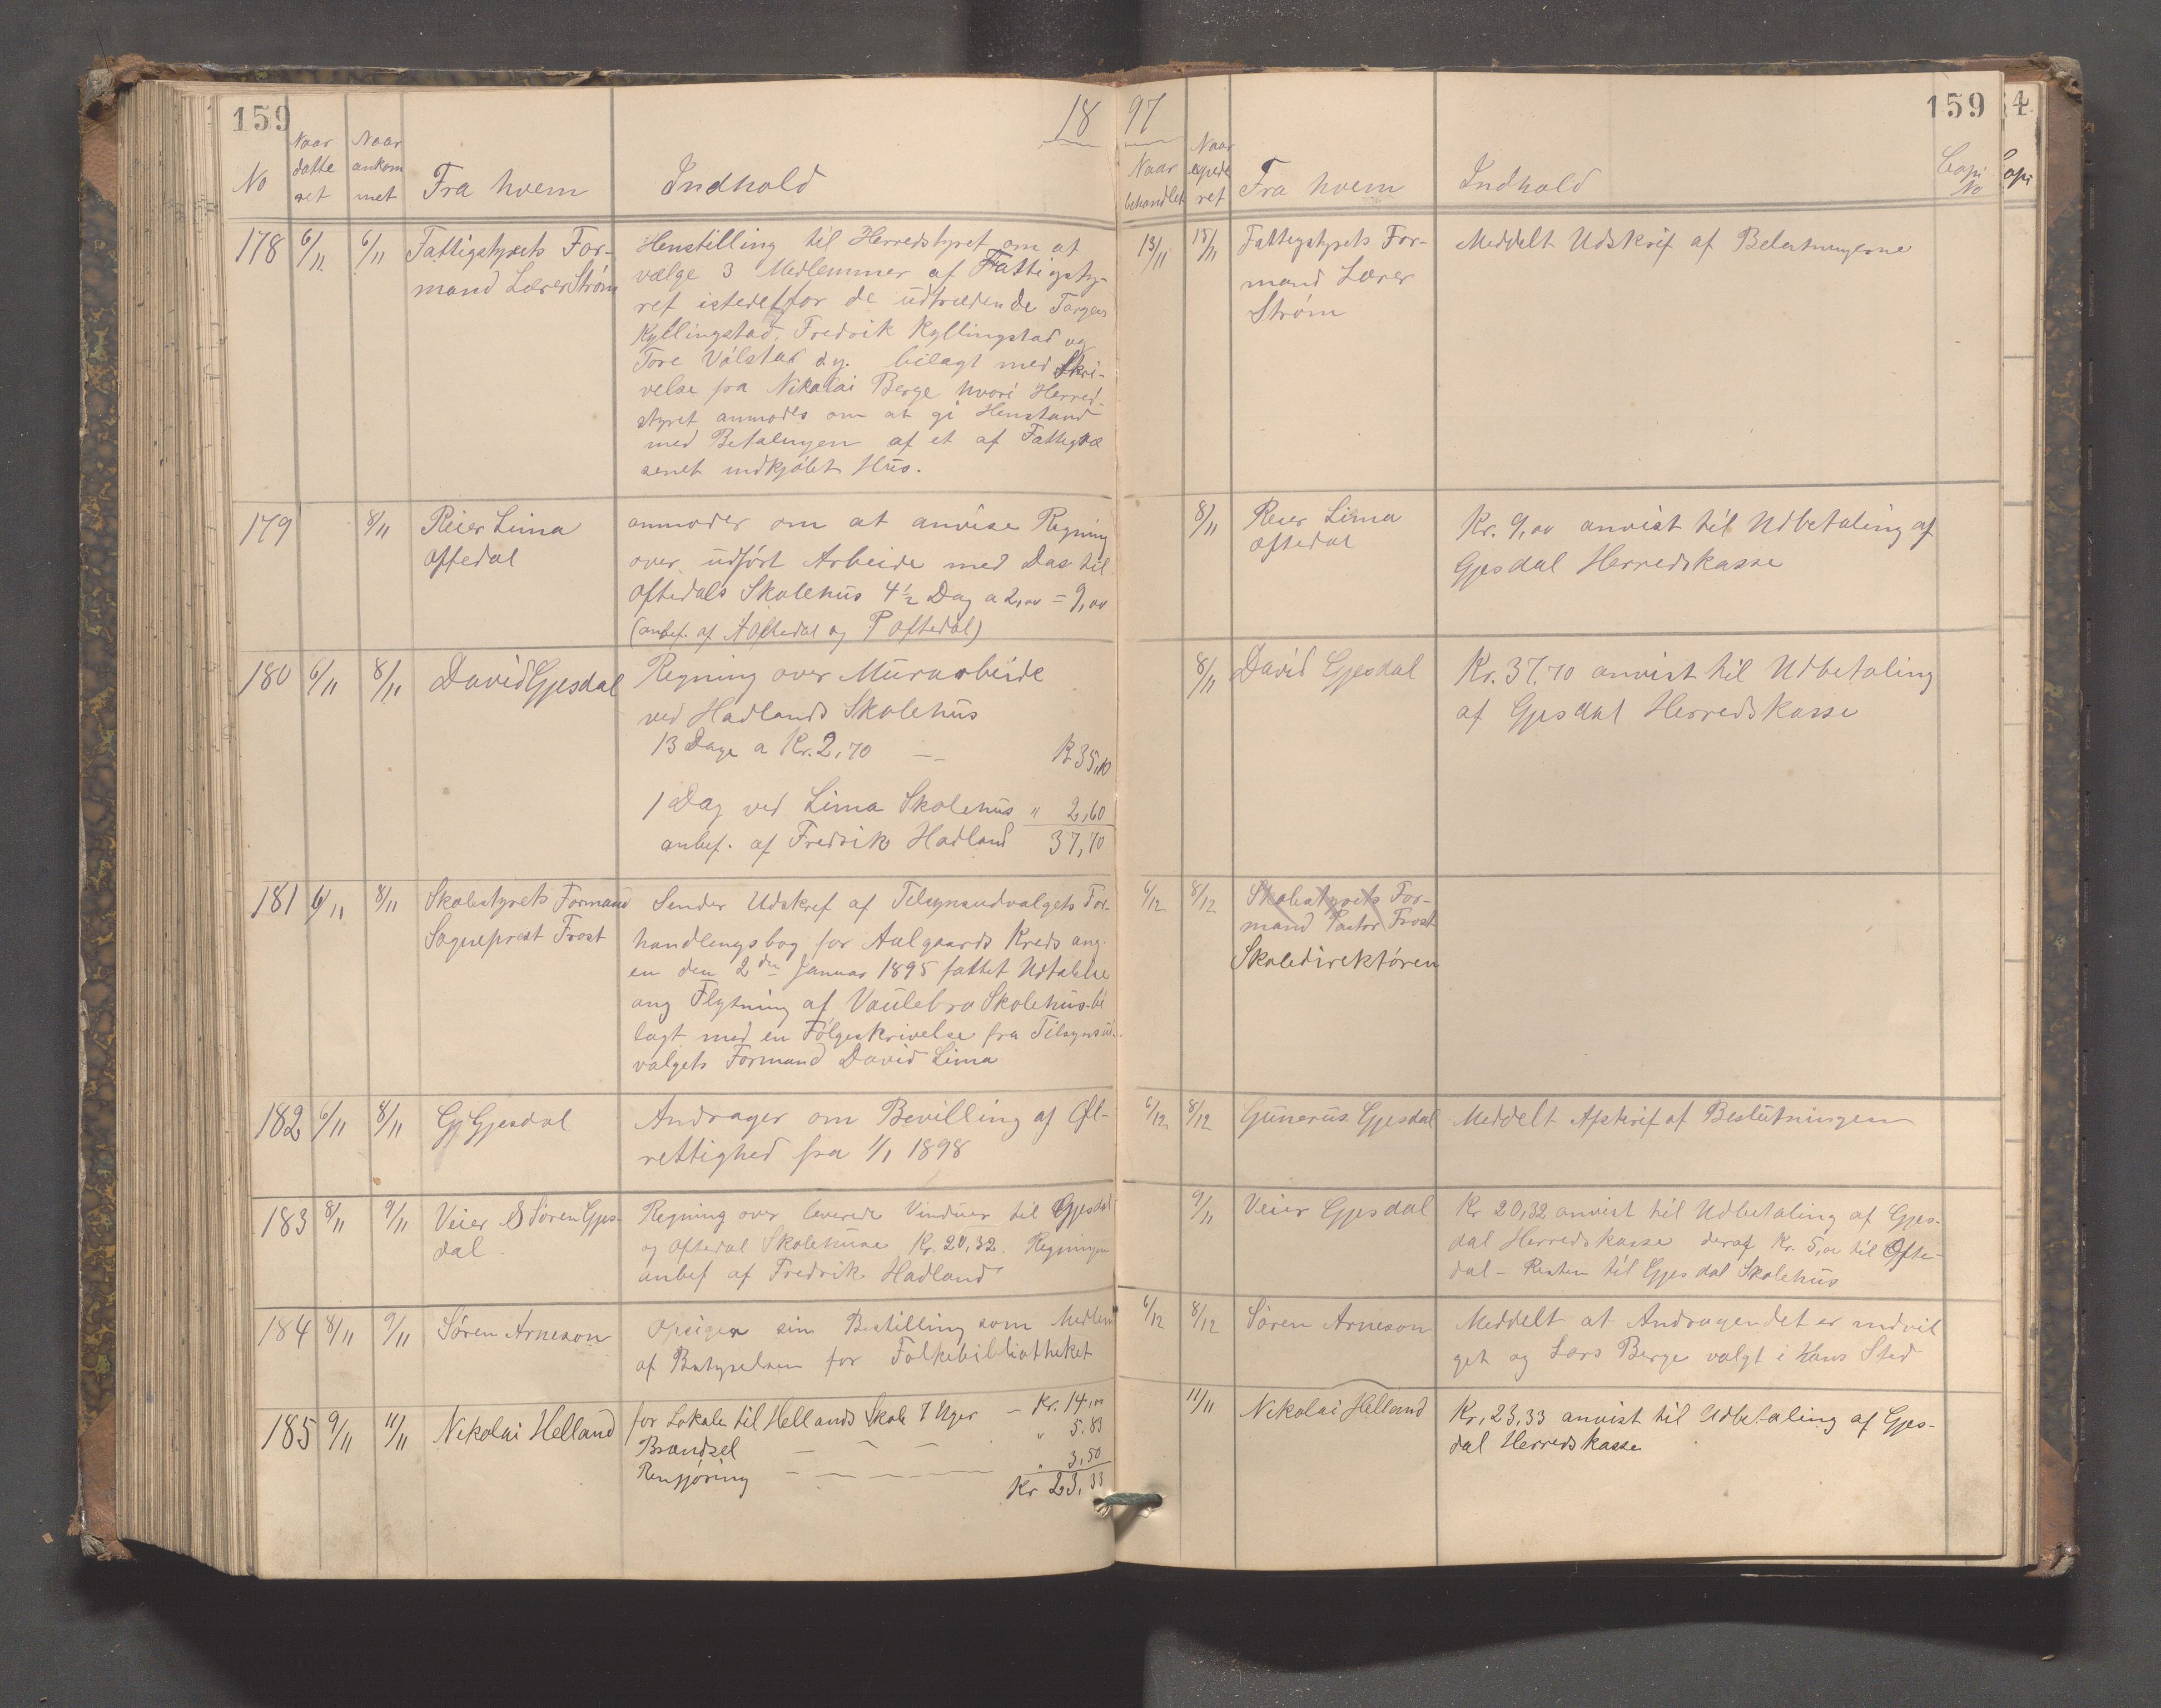 159
18
97
159
4
No
Naar datte ret
Naar ankom met
Fra hvem
Indhold
Naar behandlet
Naar expede ret
Fra hvem
Indhold
Copi No
Copi
178 6/11 6/11 Fattigstyrets For-
mand Lærer Strøm
Henstilling til Herredstyret om at
vælge 3 Medlemmer af Fattigsty-
ret istedetfor de udtrædende Torger
Kyllingstad, Fredrik Kyllingstad og
Tore Válstad dy. bilagt med Skri-
velse fra Nikolai Berge hvori Herred-
styret anmodes om at gi Henstand
med Betalingen af et af Fattigvæ
senet indkjøbt Hus.
13/11 15/11 Fattigstyrets For-
mand Lærer
Strøm
Meddelt Udskrif af Beslutningerne
179 8/11 Reier Lima
Oftedal
anmoder om at anvise Regning
over udført Arbeide med Das til
Oftedals Skolehus 4½ Dag a 2,00 = 9,00
(anbef. af A Oftedal og P Oftedal)
8/11 Reier Lima
Oftedal
Kr. 9,00 anvist til Udbetaling af
Gjesdal Herredskasse
180 6/11 8/11 David Gjesdal
Regning over Murarbeide
ved Hadlands Skolehus
13 Dage a Kr. 2,70 — Kr 35,10
1 Dag ved Lima Skolehus " 2,60
anbef. af Fredrik Hadland 37,70
8/11 David Gjesdal
Kr. 37,70 anvist til Udbetaling
af Gjesdal Herredskasse
181 6/11 8/11 Skolestyrets Formand
Sogneprest Frost
Sender Udskrif af Tilsynsudvalgets For-
handlingsbog for Aalgaards Kreds ang.
en den 2den Januar 1895 fattet Udtalelse
ang Flytning af Vaulebro Skolehus-bi
lagt med en Følgeskrivelse fra Tilsynsud-
valgets Formand David Lima
6/12 8/12 Skolestyrets For-
mand Pastor Frost
Skoledirektøren
182 6/11 8/11 Gj Gjesdal
Andrager om Bevilling af Øl-
rettighed fra 1/1 1898
6/12 8/12 Gunerius Gjesdal
Meddelt Afskrif af Beslutningen
183 8/11 9/11 Veier S Søren Gjes-
dal
Regning over leverede Vinduer til Gjesdal
og Oftedal Skolehuse Kr. 20,32. Regningen
anbef af Fredrik Hadland
9/11 Veier Gjesdal
Kr 20,32 anvist til Udbetaling af Gjes-
dal Herredskasse deraf Kr. 5,00 til Ofte-
dal - Resten til Gjesdal Skolehus
184 8/11 9/11 Søren Arneson
Opsiger sin Bestilling som Medlem
af Bestyrelsen for Folkebibliotheket
6/12 8/12 Søren Arneson
Meddelt at Andragendet er indvil
get og Lars Berge valgt i Hans Sted
185 9/11 11/11 Nikolai Helland
for Lokale til Hellands Skole 7 Uger — Kr. 14,00
Brændsel — — — " 5.83
Rengjøring — — — " 3,50
Kr 23,33
11/11 Nikolai Helland
Kr, 23,33 anvist til Udbetaling af Gjes-
dal Herredskasse